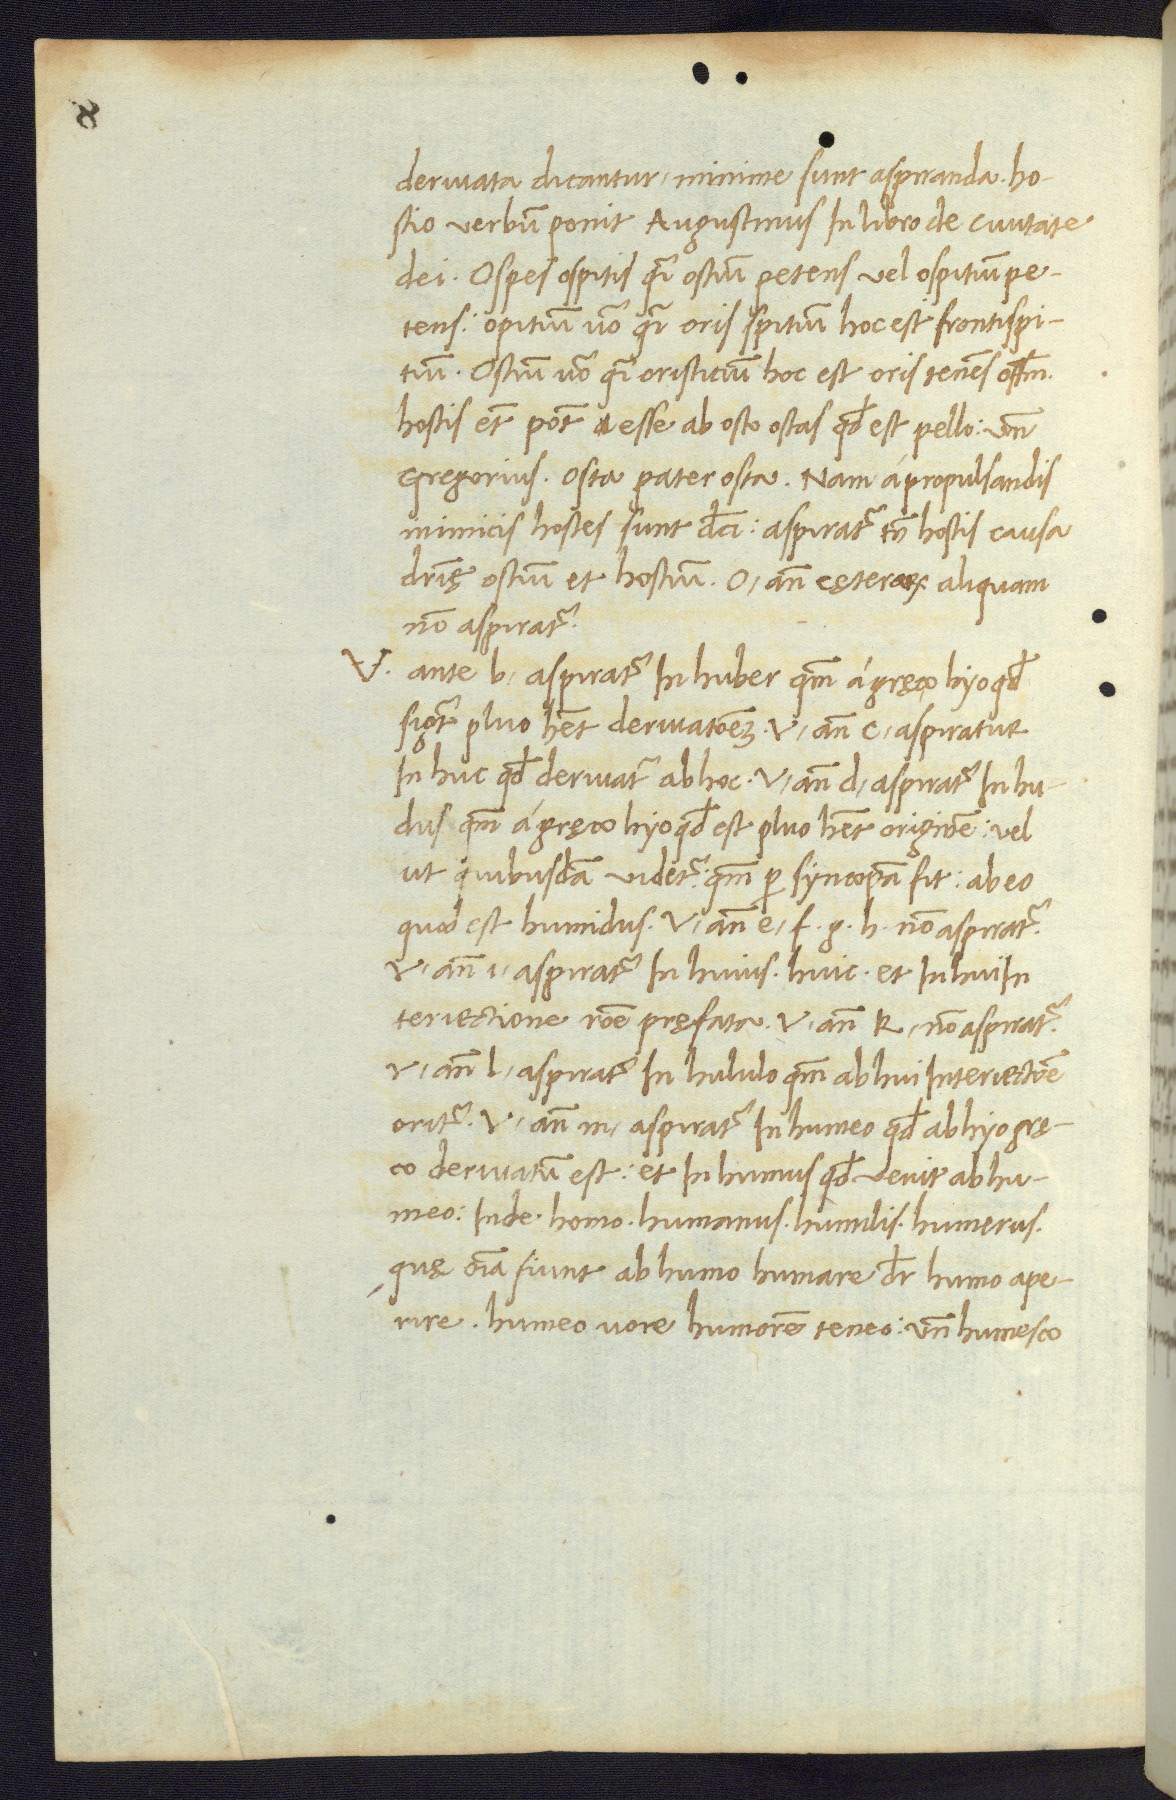 deriuata dicantur, minime sunt aspiranda. ho-
stio verbū ponit Augustinus In libro de ciuitate
dei. Ospes ospitis qͣi ostiū petens vel ospitiū pe-
tens: opitiū uͦo qͣi oris spitiū hoc est frontispi-
tiū. Ostiū uͦo qͣi oristitiū hoc est oris tenēs ostīm.
hostis et̄ pōt esse ab osto ostas qd̄ est pello: vn̄
Gregorius. Osta pater osta. Nam á propulsandis
inimicis hostes sunt dc̄i: aspirat᷑ tn̄ hostis causa
dr̄ię ostiū et hostiū. O, an̄ cęterarꝝ aliquam
nō aspirat᷑.
V. ante b, aspirat᷑ In huber qm̄ á gręco hyo qd̄
sigt᷑ pluo hēt deriuatōeꝫ. V, an̄ c, aspiratur
In huc qd̄ deriuat᷑ ab hoc. V, an̄ d, aspirat᷑ In hu-
dus qm̄ á gręco hyo qd̄ est pluo hēt originē: vel
ut quibusdā videt᷑: qm̄ ꝑ syncopā fit: ab eo
quod est humidus. V, an̄ e, f. g. h. nō aspirat᷑.
V, an̄ i, aspirat᷑ In huius. huic. et In hui In
teriectione rōe pręfata. V, an̄ K, nō aspirat᷑.
V, an̄ l, aspirat᷑ In hululo qm̄ ab hui Interiectōe
orit᷑. V, an̄ m, aspirat᷑ In humeo qd̄ ab hyo grę-
co deriuatū est: et In humus qd̄ venit ab hu-
meo: Inde. homo. humanus. humilis. humerus.
quę oīa fiunt ab humo humare dr̄ humo ape-
rire. humeo uore humorē teneo: vn̄ humesco